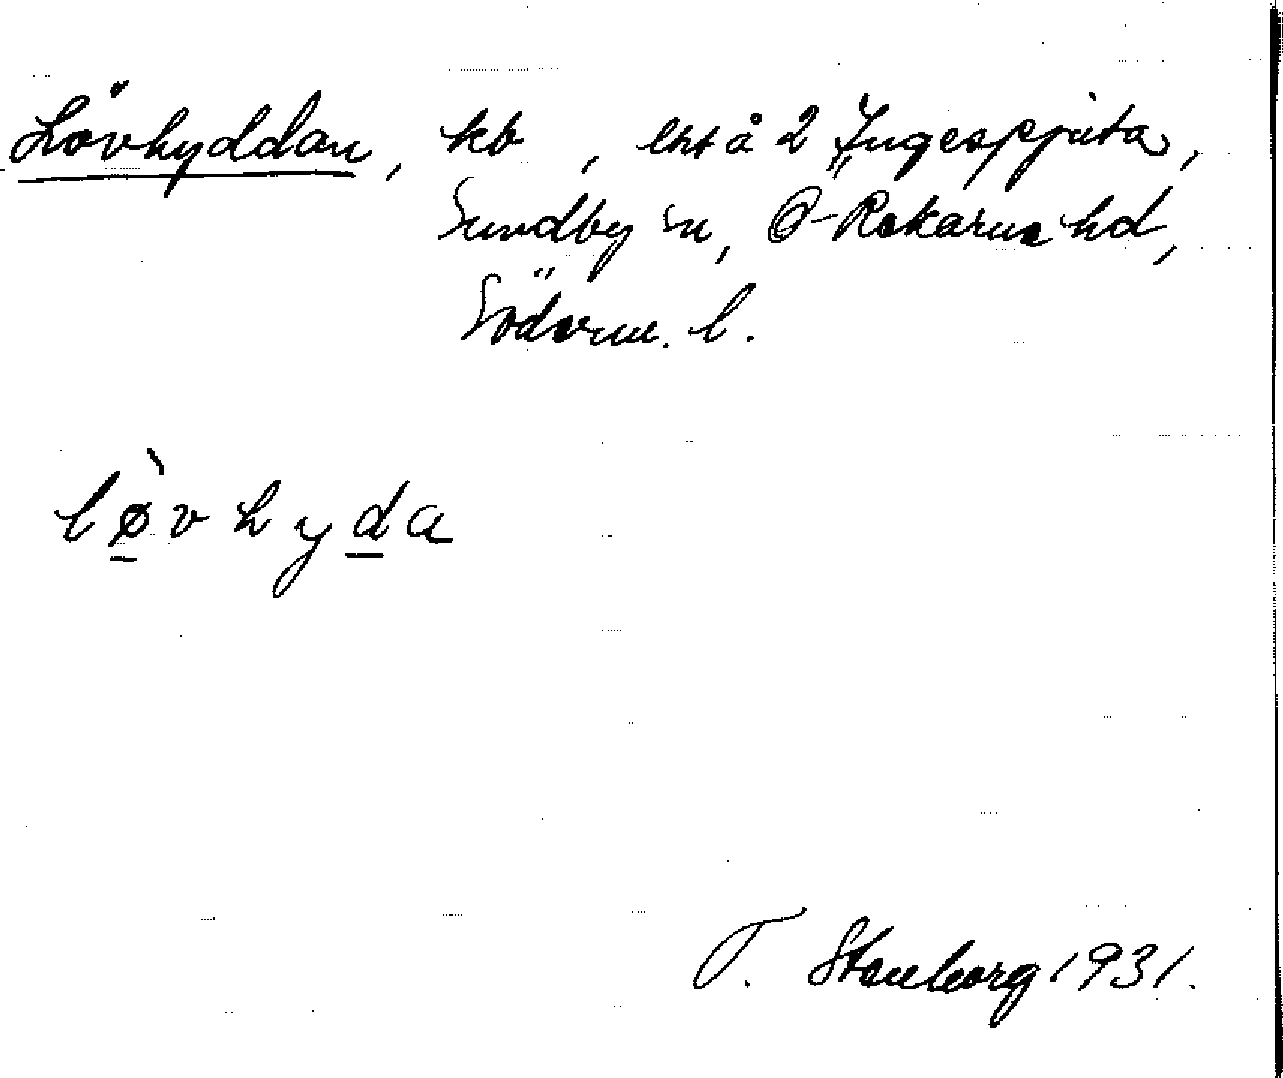 Lövhyddan, kb, ent å 2 Ingespjuta,
Sundby sn, Ö-Rekarne hd,
Söderm. l.
lø̀vhyda
T. Stenborg 1931.